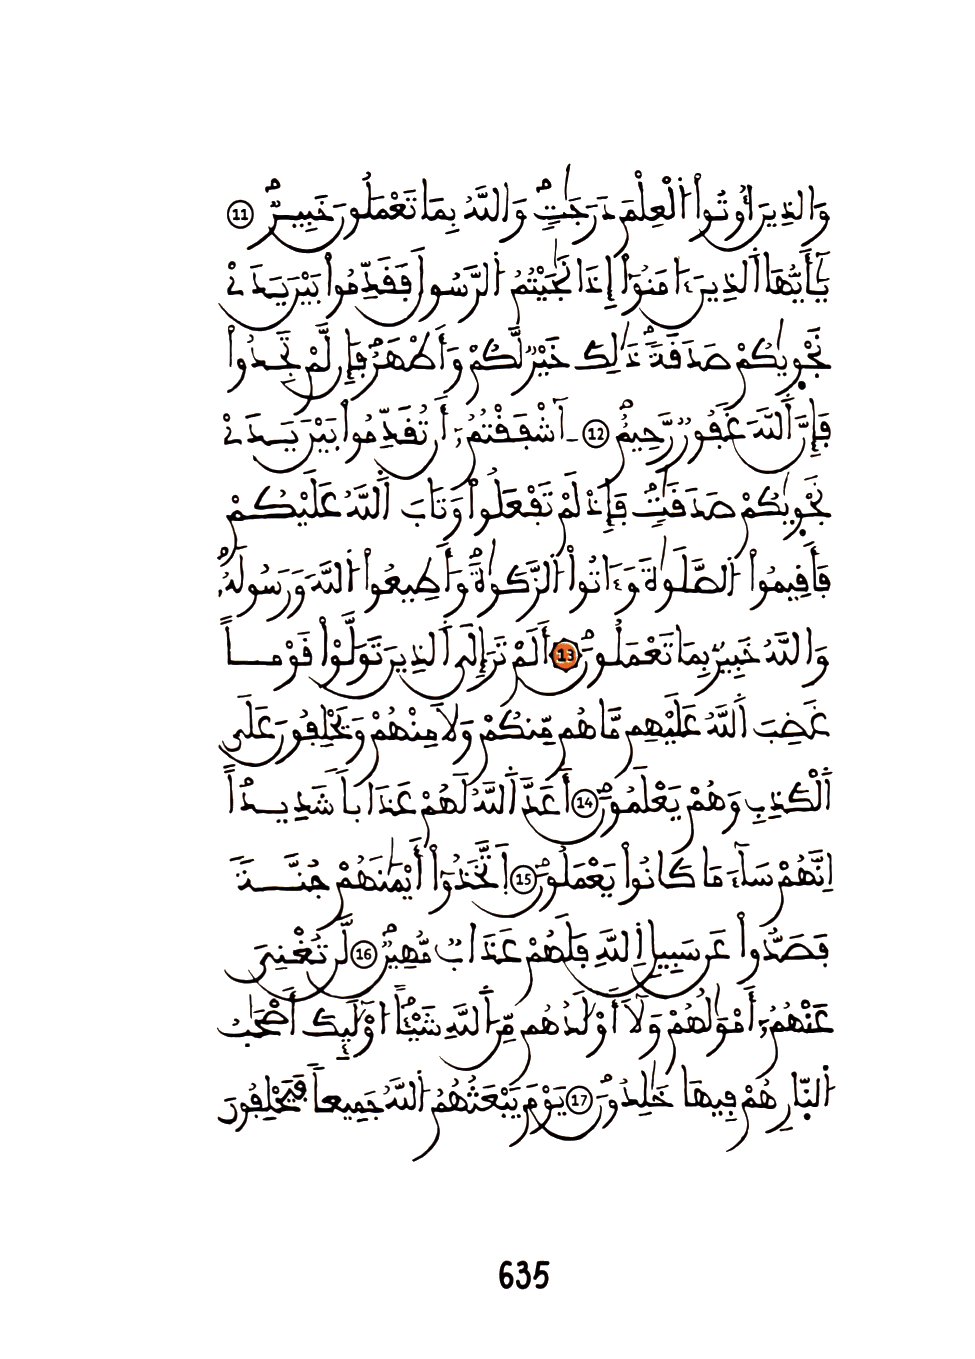 وَالذِينَ أُوتُواْ اُ۬لْعِلْمَ دَرَجَٰتٖۖ وَاللَّهُ بِمَا تَعْمَلُونَ خَبِيرٞۖ 11
يَٰٓأَيُّهَا اَ۬لذِينَ ءَامَنُوٓاْ إِذَا نَٰجَيْتُمُ اُ۬لرَّسُولَ فَقَدِّمُواْ بَيْنَ يَدَےْ
نَجْوۭيٰكُمْ صَدَقَةٗۖ ذَٰلِكَ خَيْرٞ لَّكُمْ وَأَطْهَرُۖ فَإِن لَّمْ تَجِدُواْ
فَإِنَّ اَ۬للَّهَ غَفُورٞ رَّحِيمٌۖ 12 ءَآشْفَقْتُمُۥٓ أَن تُقَدِّمُواْ بَيْنَ يَدَےْ
نَجْوۭيٰكُمْ صَدَقَٰتٖۖ فَإِذْ لَمْ تَفْعَلُواْ وَتَابَ اَ۬للَّهُ عَلَيْكُمْ
فَأَقِيمُواْ اُ۬لصَّلَوٰةَ وَءَاتُواْ اُ۬لزَّكَوٰةَۖ وَأَطِيعُواْ اُ۬للَّهَ وَرَسُولَهُۥۖ
وَاللَّهُ خَبِيرُۢ بِمَا تَعْمَلُونَۖ 13 أَلَمْ تَرَ إِلَى اَ۬لذِينَ تَوَلَّوْاْ قَوْماً
غَضِبَ اَ۬للَّهُ عَلَيْهِم مَّا هُم مِّنكُمْ وَلَا مِنْهُمْ وَيَحْلِفُونَ عَلَى
اَ۬لْكَذِبِ وَهُمْ يَعْلَمُونَۖ 14 أَعَدَّ اَ۬للَّهُ لَهُمْ عَذَاباٗ شَدِيداًۖ
اِنَّهُمْ سَآءَ مَا كَانُواْ يَعْمَلُونَۖ 15 اَ۪تَّخَذُوٓاْ أَيْمَٰنَهُمْ جُنَّةٗ
فَصَدُّواْ عَن سَبِيلِ اِ۬للَّهِ فَلَهُمْ عَذَابٞ مُّهِينٞۖ 16 لَّن تُغْنِيَ
عَنْهُمُۥٓ أَمْوَٰلُهُمْ وَلَآ أَوْلَٰدُهُم مِّنَ اَ۬للَّهِ شَيْـٔاًۖ ا۟وْلَٰٓئِكَ أَصْحَٰبُ
اُ۬لنّ۪ارِ هُمْ فِيهَا خَٰلِدُونَۖ 17 يَوْمَ يَبْعَثُهُمُ اُ۬للَّهُ جَمِيعاٗ فَيَحْلِفُونَ
635